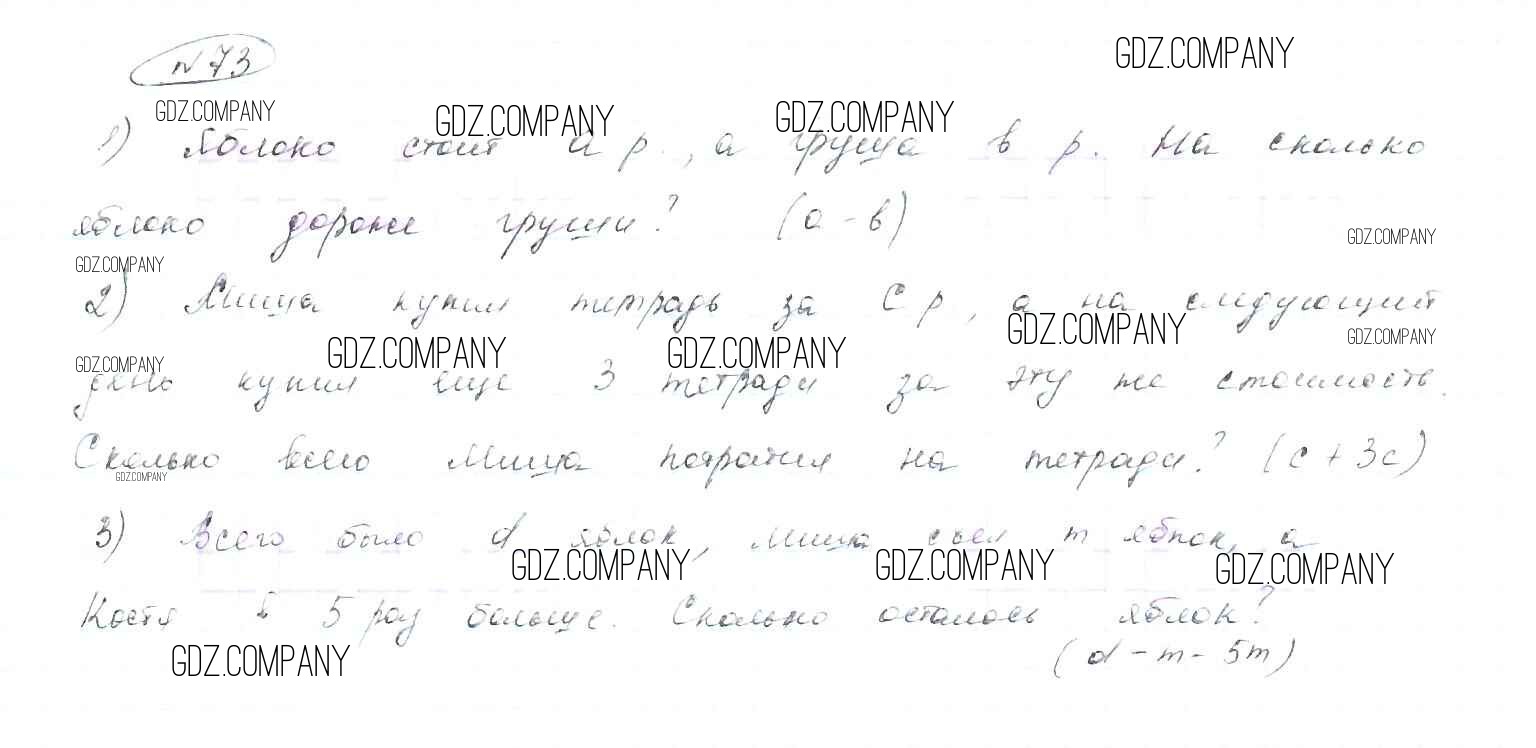 N 73
GDZ.COMPANY
GDZ.COMPANY GDZ.COMPANY GDZ.COMPANY
1) Яблоко стоит а р., а груша в р. На сколько
яблоко дороже груши? (а - в)
GDZ.COMPANY
GDZ.COMPANY
2) Миша купил тетрадь за с р, а на следующий
GDZ.COMPANY GDZ.COMPANY GDZ.COMPANY GDZ.COMPANY GDZ.COMPANY
день купил еще 3 тетради за эту же стоимость.
Сколько всего Миша потратил на тетради? (с + 3с)
GDZ.COMPANY
3) Всего было d яблок, миша съел m яблок, а
GDZ.COMPANY GDZ.COMPANY GDZ.COMPANY
Костя в 5 раз больше. Сколько осталось яблок?
(d - m - 5m)
GDZ.COMPANY